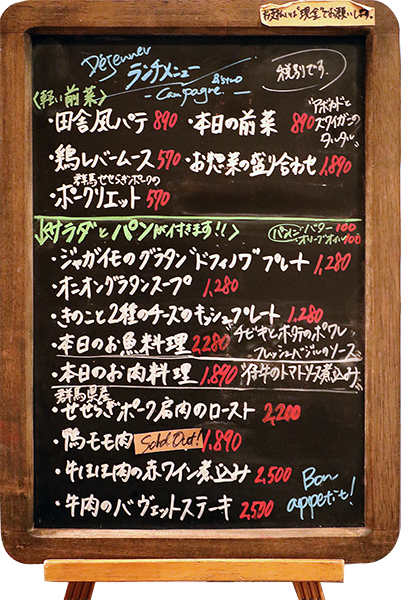 お支払いは"現金"でお願いします。
Déjeuner
ランチメニュー
Bistro
- Campagne -
税別です。
〈軽い前菜〉
・田舎風パテ 890 ・本日の前菜 890 "アボカドと
ズワイガニの
タルタル"
・鶏レバームース 570 ・お惣菜の盛り合わせ 1,890
群馬せせらぎポークの
・ポークリエット 570
〈サラダとパンが付きます!!〉 バター 100
オリーブオイル 100
・ジャガイモのグラタン"ドフィノワ"プレート 1,280
・オニオングラタンスープ 1,280
・きのこと2種のチーズのキッシュプレート 1,280
・本日のお魚料理 2,280 "チビキとホタテのポワレ
フレッシュバジルのソース"
・本日のお肉料理 1,890 "仔牛のトマトソース煮込み"
群馬県産
・せせらぎポーク肩肉のロースト 2,200
・鴨モモ肉 Sold Out! 1,890
・牛ほほ肉の赤ワイン煮込み 2,500
・牛肉のバヴェットステーキ 2,500
Bon
appetit!